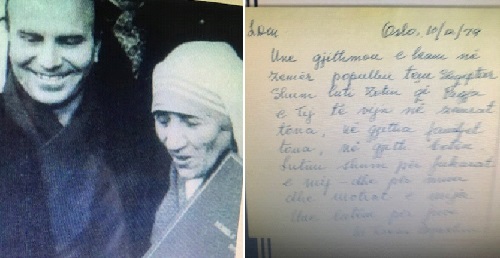 Oslo, 10/12/79
Une gjithmon e kam në
zemër popullin tem Shqyptar
Shum luti Zotin që Paqja
e tij të vijn në zemrat
tona, në gjitha familjet
tona, në gjith botën
Lutuni shum për fukarat
e mij - dhe për mua
dhe motrat e mija
Une lutem për juve